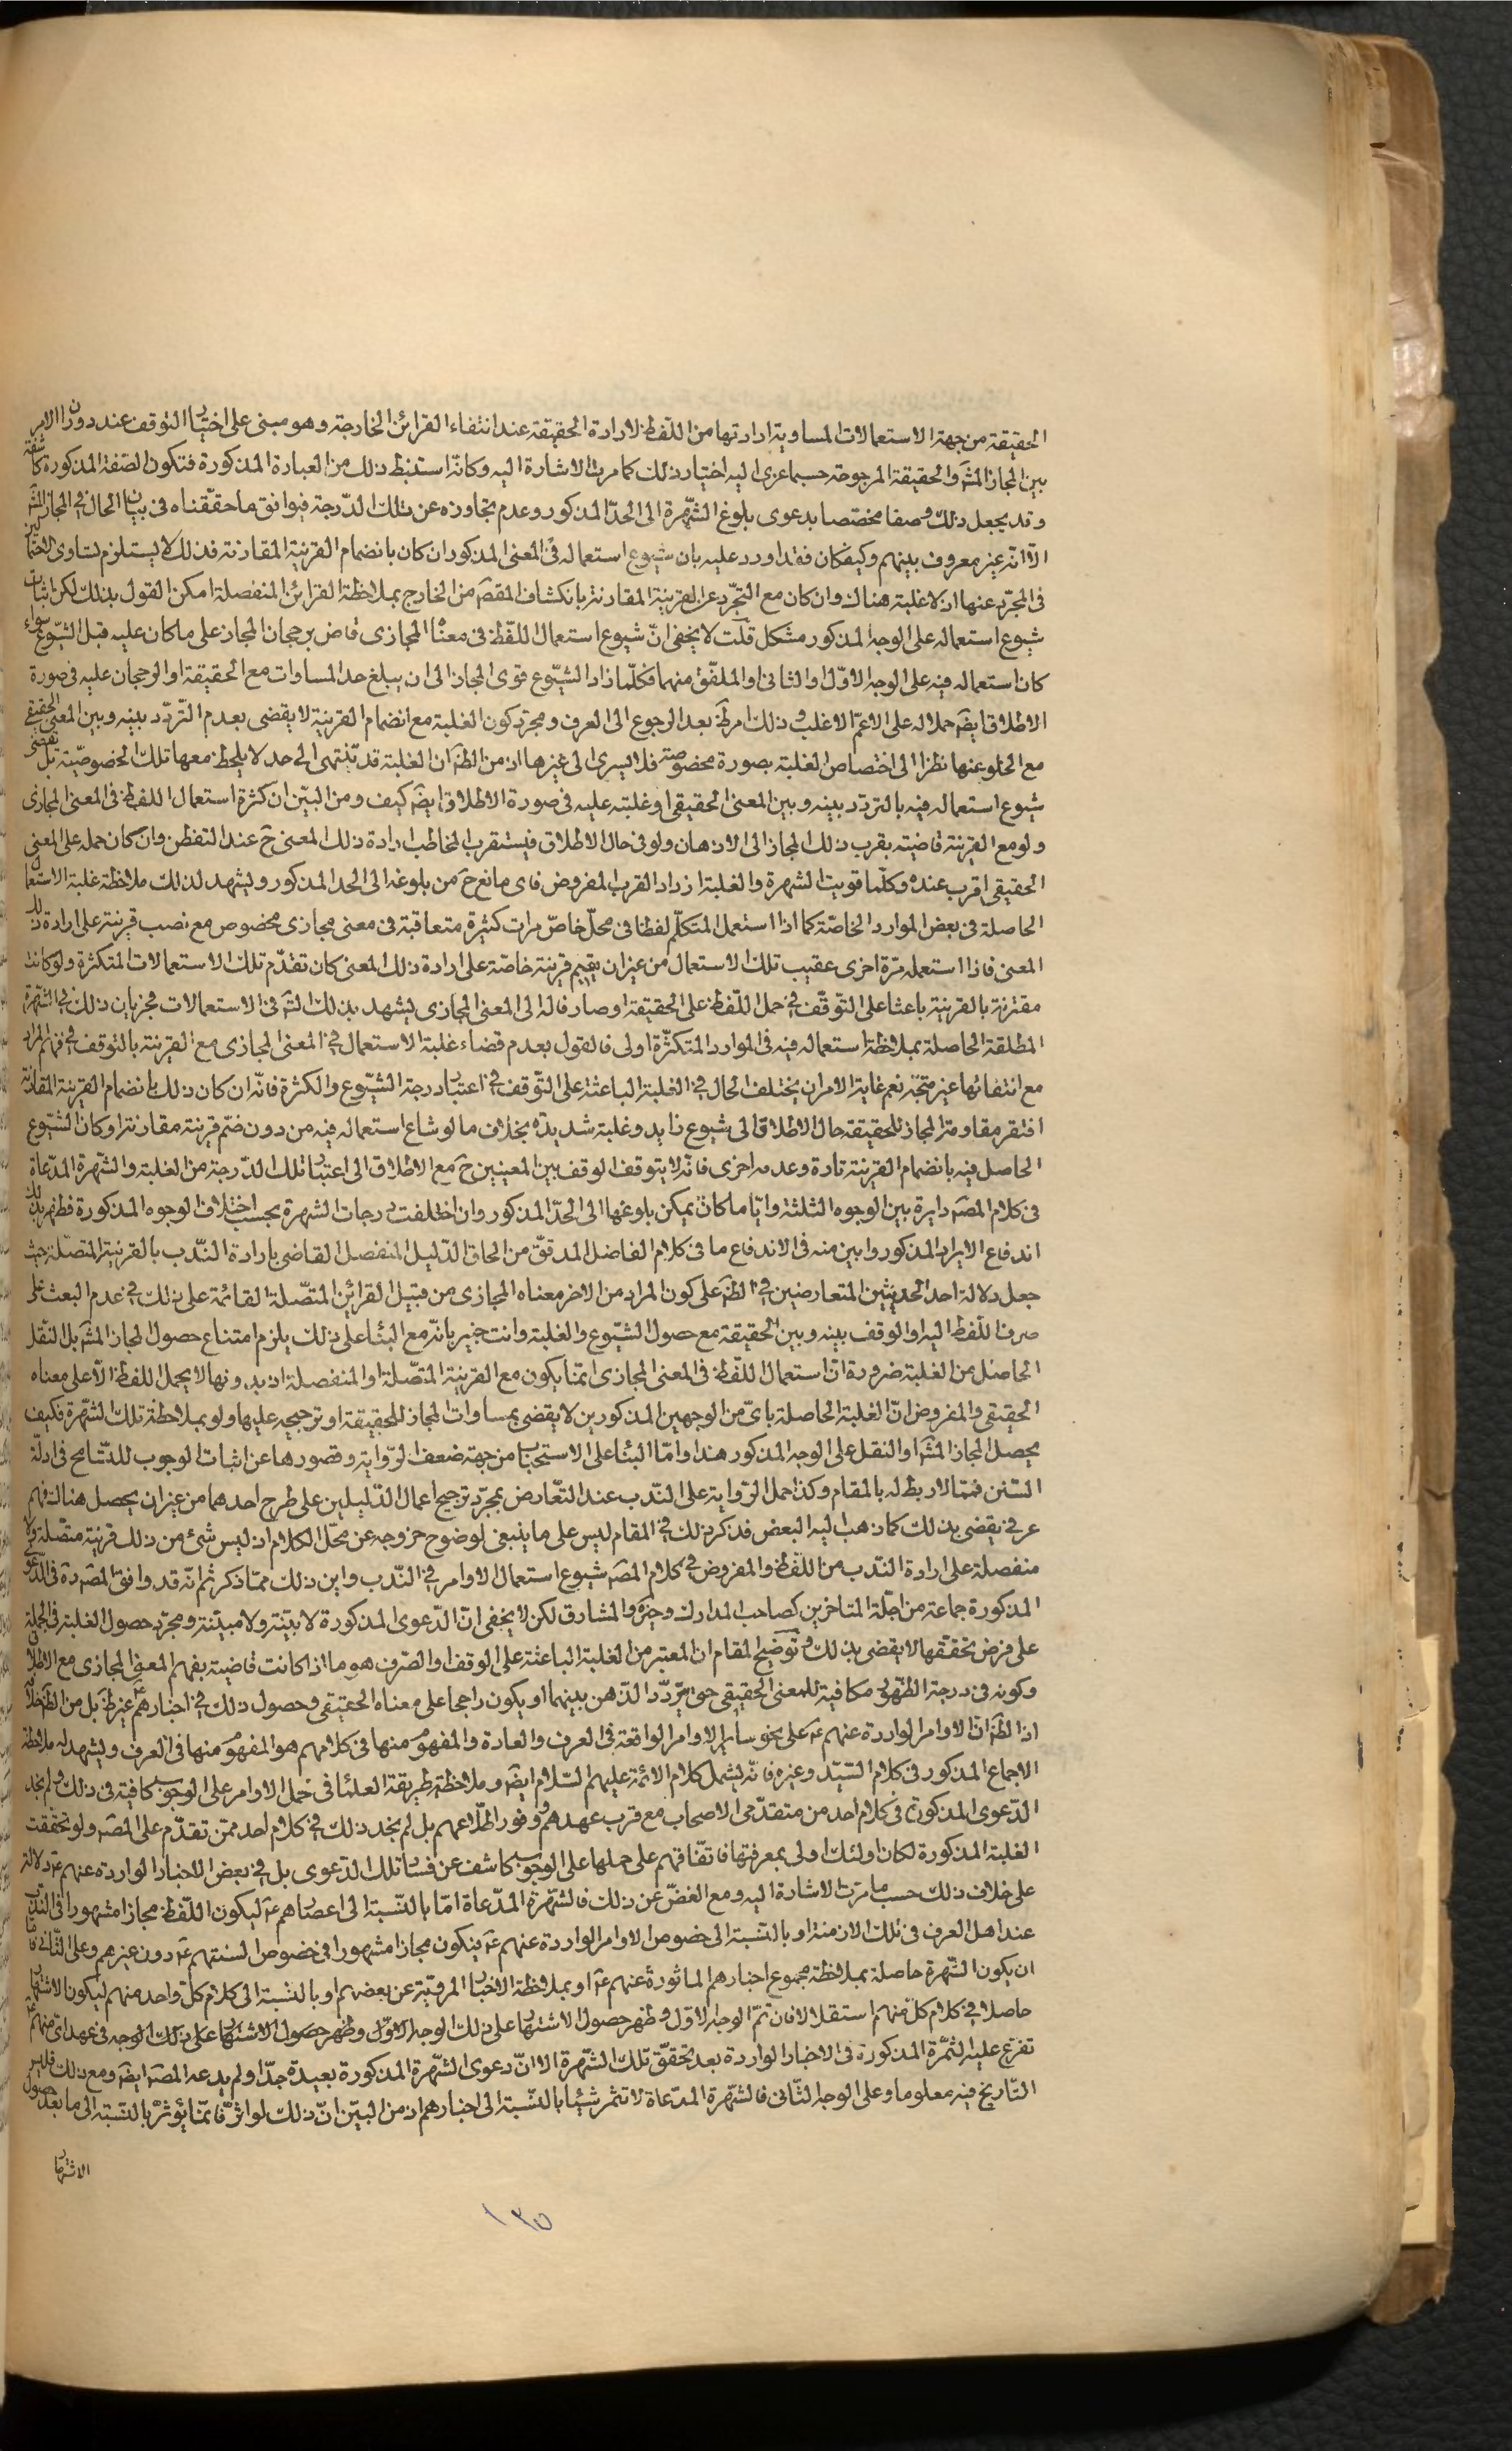 الحقيقة من جهة الاستعمالات المساوية ارادتها من اللفظ لارادة الحقيقة عند انتفاء القرائن الخارجة وهو مبنى على اختيار التوقف عند دوران الامر
بين المجاز المشه والحقيقة المرجوحة حسبما عزى اليه اختيار ذلك كما مرت الاشارة اليه وكانه استنبط ذلك من العبارة المذكورة فتكون الصفة المذكورة كاشفة
وقد يجعل ذلك وصفا مخصصا بدعوى بلوغ الشهرة الى الحد المذكور وعدم تجاوزه عن تلك الدرجة فيوافق ما حققناه فى بيان الحال فى المجاز المشه
الا انه غير معروف بينهم وكيف كان فقد اورد عليه بان شيوع استعماله فى المعنى المذكور ان كان بانضمام القرينة المقارنة فذلك لا يستلزم تساوى الاحتمالين
فى المجرد عنها اذ لا غلبة هناك وان كان مع التجرد عن القرينة المقارنة بانكشاف المقصَ من الخارج بملاحظة القرائن المنفصلة امكن القول بذلك لكن اثبات
شيوع استعماله على الوجه المذكور مشكل قلت لا يخفى ان شيوع استعمال اللفظ فى معناه المجازى قاض برجحان المجاز على ما كان عليه قبل الشيوع سواء
كان استعماله فيه على الوجه الاول او الثانى او الملفق منهما فكلما زاد الشيوع قوى المجاز الى ان يبلغ حد المساوات مع الحقيقة او الرجحان عليه فى صورة
الاطلاق ايضَ حملا له على الاعم الاغلب وذلك امر ظَ بعد الرجوع الى العرف ومجرد كون الغلبة مع انضمام القرينة لا يقضى بعدم التردد بينه وبين المعنى الحقيقى
مع الخلو عنها نظرا الى اختصاص الغلبة بصورة مخصوصة فلا يسرى الى غيرها اذ من الظَ ان الغلبة قد تنتهى الى حد لا يلحظ معها تلك الخصوصية بل تقضى
شيوع استعماله فيه بالتردد بينه وبين المعنى الحقيقى او غلبته عليه فى صورة الاطلاق ايضَ كيف ومن البين ان كثرة استعمال اللفظ فى المعنى المجازى
ولو مع القرينة قاضية بقرب ذلك المجاز الى الاذهان ولو فى حال الاطلاق فيستقرب المخاطب ارادة ذلك المعنى حَ عند التفطن وان كان حمله على المعنى
الحقيقى اقرب عنده وكلما قويت الشهرة والغلبة ازداد القرب المفروض فاى مانع حَ من بلوغه الى الحد المذكور ويشهد لذلك ملاحظة غلبة الاستعمال
الحاصلة فى بعض الموارد الخاصة كما اذا استعمل المتكلم لفظا فى محل خاص مرات كثيرة متعاقبة فى معنى مجازى مخصوص مع نصب قرينة على ارادة ذلك
المعنى فاذا استعمله مرة اخرى عقيب تلك الاستعمال من غير ان يقيم قرينة خاصة على ارادة ذلك المعنى كان تقدم تلك الاستعمالات المتكثرة ولو كانت
مقترنة بالقرينة باعثا على التوقف فى حمل اللفظ على الحقيقة او صارفا له الى المعنى المجازى يشهد بذلك التَه فى الاستعمالات فجريان ذلك فى الشهرة
المطلقة الحاصلة بملاحظة استعماله فيه فى الموارد المتكثرة اولى فالقول بعدم قضاء غلبة الاستعمال فى المعنى المجازى مع القرينة بالتوقف فى فهم المراد
مع انتفائها غير متجه نعم غاية الامر ان يختلف الحال فى الغلبة الباعثة على التوقف فى اعتبار درجة الشيوع والكثرة فانه ان كان ذلك بانضمام القرينة المقارنة
افتقر مقاومة المجاز للحقيقة حال الاطلاق الى شيوع زايد وغلبة شديدة بخلاف ما لو شاع استعماله فيه من دون ضم قرينة مقارنة او كان الشيوع
الحاصل فيه بانضمام القرينة تارة وعدمه اخرى فانه لا يتوقف الوقف بين المعنيين حَ مع الاطلاق الى اعتبار تلك الدرجة من الغلبة والشهرة المدعاة
فى كلام المصَ دايرة بين الوجوه الثلثة وايا ما كان يمكن بلوغها الى الحد المذكور وان اختلفت درجات الشهرة بحسب اختلاف الوجوه المذكورة فظهر بذلك
اندفاع الايراد المذكور وابين منه فى الاندفاع ما فى كلام الفاضل المدقق من الحاق الدليل المنفصل القاضى بارادة الندب بالقرينة المتصلة حيث
جعل دلالة احد الحديثين المتعارضين فى الظَ على كون المراد من الاخر معناه المجازى من قبيل القرائن المتصلة القائمة على ذلك فى عدم البعث على
صرف اللفظ اليه او الوقف بينه وبين الحقيقة مع حصول الشيوع والغلبة وانت خبير بانه مع البناء على ذلك يلزم امتناع حصول المجاز المشه بل النقل
الحاصل من الغلبة ضرورة ان استعمال اللفظ فى المعنى المجازى انما يكون مع القرينة المتصلة او المنفصلة اذ بدونها لا يحمل اللفظ الا على معناه
الحقيقى والمفروض ان الغلبة الحاصلة باى من الوجهين المذكورين لا يقضى بمساوات المجاز للحقيقة او ترجيحه عليها ولو بملاحظة تلك الشهرة فكيف
يحصل المجاز المشه او النقل على الوجه المذكور هذا واما البناء على الاستحباب من جهة ضعف الرواية وقصورها عن اثبات الوجوب للتسامح فى ادلة
السنن فمما لا ربط له بالمقام وكذا حمل الرواية على الندب عند التعارض بمجرد ترجيح اعمال الدليلين على طرح احدهما من غير ان يحصل هناك فهم
عرفى يقضى بذلك كما ذهب اليه البعض فذكر ذلك فى المقام ليس على ما ينبغى لوضوح خروجه عن محل الكلام اذ ليس شئ من ذلك قرينة متصلة ولا
منفصلة على ارادة الندب من اللفظ والمفروض فى كلام المصَ شيوع استعمال الاوامر فى الندب واين ذلك مما ذكر ثم انه قد وافق المصَ ره فى الدعوى
المذكورة جماعة من اجلة المتاخرين كصاحب المدارك والمشارق لكن لا يخفى ان الدعوى المذكورة لا بينة ولا مبينة ومجرد حصول الغلبة فى الجملة
على فرض تحققها لا يقضى بذلك وتوضيح المقام ان المعتبر من الغلبة الباعثة على الوقف او الصرف هو ما اذا كانت قاضية بفهم المعنى المجازى مع الاطلاق
وكونه فى درجة الظهور مكافية للمعنى الحقيقى حتى يتردد الذهن بينهما او يكون راجحا على معناه الحقيقى وحصول ذلك فى اخبارهم عَ غير ظَ بل من الظَ خلافه
اذ الظَ ان الاوامر الواردة عنهم عَ على نحو سائر الاوامر الواقعة فى العرف والعادة والمفهوم منها فى كلامهم هو المفهوم منها فى العرف ويشهد له ملاحظة
الاجماع المذكور فى كلام السيد وغيره فانه يشمل كلام الائمة عليهم السلام ايضَ وملاحظة طريقة العلماء فى حمل الاوامر على الوجوب كافية فى ذلك ولم نجد
الدعوى المذكورة فى كلام احد من متقدمى الاصحاب مع قرب عهدهم ووفور اطلاعهم بل لم نجد ذلك فى كلام احد ممن تقدم على المصَ ولو تحققت
الغلبة المذكورة لكان اولئك اولى بمعرفتها فاتفاقهم على حملها على الوجوب كاشف عن فساد تلك الدعوى بل فى بعض الاخبار الواردة عنهم عَ دلالة
على خلاف ذلك حسب ما مرت الاشارة اليه ومع الغض عن ذلك فالشهرة المدعاة اما بالنسبة الى اعصارهم عَ ليكون اللفظ مجازا مشهورا فى الندب
عند اهل العرف فى تلك الازمنة او بالنسبة الى خصوص الاوامر الواردة عنهم عَ فيكون مجازا مشهورا فى خصوص السنتهم عَ دون غيرهم وعلى الثانى فاما
ان يكون الشهرة حاصلة بملاحظة مجموع اخبارهم الماثورة عنهم عَ او بملاحظة الاخبار المروية عن بعضهم او بالنسبة الى كلام كل واحد منهم ليكون الاشتهار
حاصلا فى كلام كل منهم استقلالا فان تم الوجه الاول وظهر حصول الاشتهار على ذلك الوجه الاول وظهر حصول الاشتهار على ذلك الوجه فى عهد اى منهم عَ
تفرع عليه الثمرة المذكورة فى الاخبار الواردة بعد تحقق تلك الشهرة الا ان دعوى الشهرة المذكورة بعيدة جدا ولم يدعه المصَ ايضَ ومع ذلك فليس
التاريخ فيه معلوما وعلى الوجه الثانى فالشهرة المدعاة لا تثمر شيئا بالنسبة الى اخبارهم اذ من البين ان ذلك لو اثر فانما يؤثر بالنسبة الى ما بعد حصول
الاشتهار
١٣٥